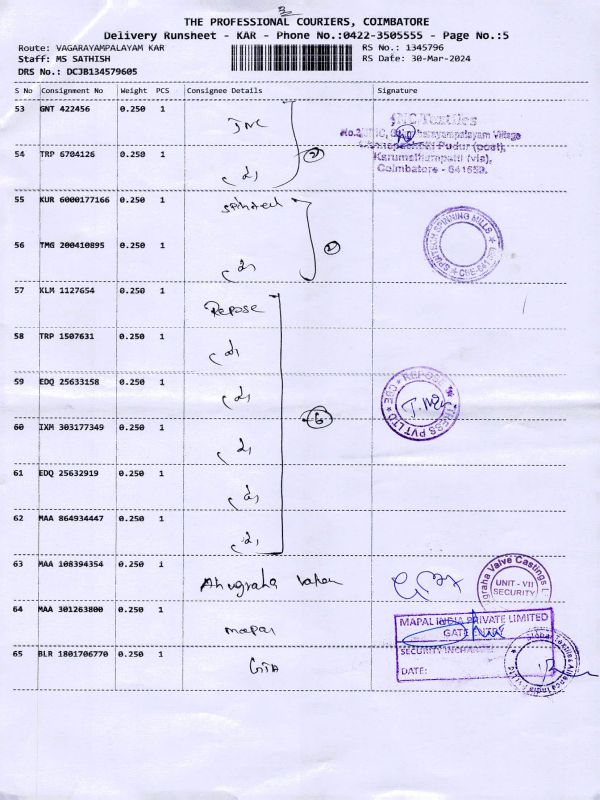 THE PROFESSIONAL COURIERS, COIMBATORE
Delivery Runsheet - KAR - Phone No.:0422-3505555 - Page No.:5
Route: VAGARAYAMPALAYAM KAR RS No.: 1345796
Staff: MS SATHISH RS Date: 30-Mar-2024
DRS No.: DCJB134579605
S No Consignment No Weight PCS Consignee Details Signature
53 GNT 422456 0.250 1 JNC
JNC Textiles
Village
Pudur (post),
Karumathampatti (via),
Coimbatore - 641659.
54 TRP 6704126 0.250 1
2
55 KUR 6000177166 0.250 1
SPINNING MILLS
56 TMG 200410895 0.250 1
2
57 KLM 1127654 0.250 1 Repose
58 TRP 1507631 0.250 1
59 EDQ 25633158 0.250 1
REPOSE MATTRESS PVT LTD CBE
60 IXM 303177349 0.250 1
6
61 EDQ 25632919 0.250 1
62 MAA 864934447 0.250 1
63 MAA 108394354 0.250 1 Anugraha Valve
Anugraha Valve Castings L
UNIT - VII
SECURITY
64 MAA 301263800 0.250 1 mapal
MAPAL INDIA PRIVATE LIMITED
GATE
SECURITY INCHARGE
DATE:
65 BLR 1801706770 0.250 1 GTA